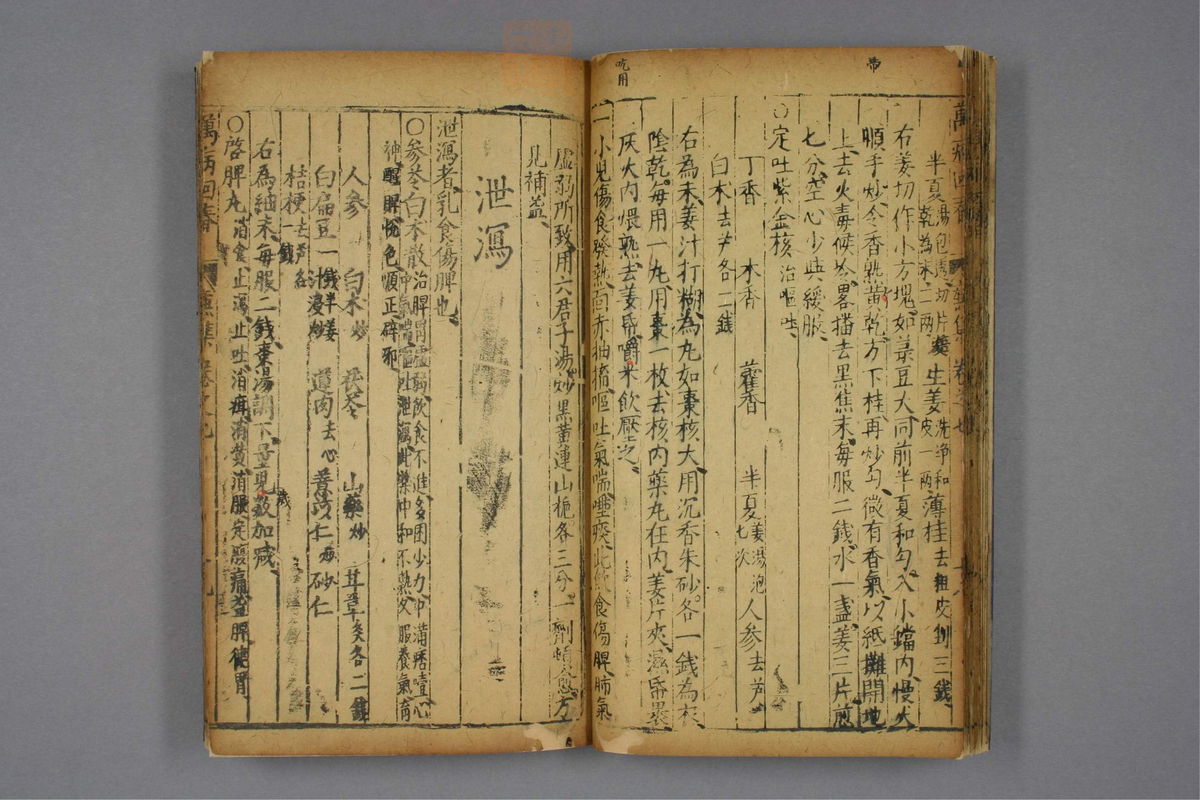 吃用
帶
萬病回春
半夏湯泡透切片 生姜洗淨和皮一兩 薄桂去粗皮剉三錢
乾為末二兩
右姜切作小方塊如菉豆大同前半夏和匀入小鐺内慢火
順手炒令香熟黄乾方下桂再炒匀微有香氣以紙攤開地
上去火毒候冷畧揚去黑焦末每服二錢水一盞姜三片煎
七分空心少與緩服
○定吐紫金核 治嘔吐
丁香 木香 藿香 半夏姜湯泡七次 人参去芦
白术去芦各一錢
右為末姜汁打糊為丸如棗核大用沉香朱砂各一錢為衣
陰乾每用一丸用棗一枚去核内藥丸在内姜片夾濕帋裹
灰火内煨熟去姜帋嚼米飲壓之
一小兒傷食發熱面赤抽搐嘔吐氣喘 痰此 食傷脾肺氣
虚弱所致用六君子湯炒黑黄連山栀各三分一劑頓愈方
見補益
泄瀉
泄瀉者乳食傷脾也
○参苓白术散 治脾胃虚弱飲食不進多困少力中滿痞噎心
忡氣喘嘔吐泄瀉此藥中和不熱久服養氣育
神醒脾悅色順正辟邪
人参 白术炒 茯苓 山藥炒 甘草炙各二錢
白扁豆一錢半姜汁浸炒 蓮肉去心 薏苡仁炒 砂仁
桔梗去芦各一錢
右為細末每服二錢棗湯調下量兒歲數加减
○啓脾丸 消食止瀉止吐消疳消黄消脹定腹痛益脾健胃
萬病回春